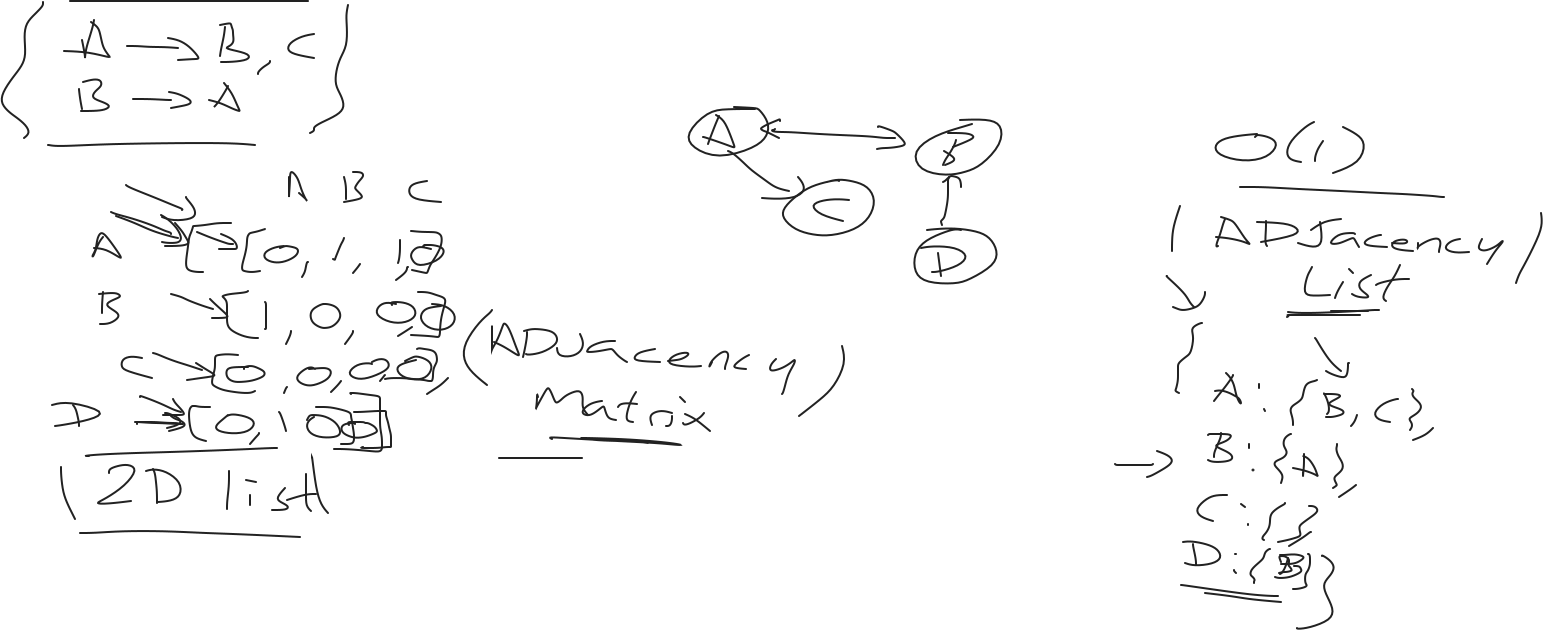 A → B, C
B → A
A B C
A [[0, 1, 1, 0]
B [1, 0, 0, 0]
C [0, 0, 0, 0],
D [0, 1 0 0]]
(2D list
(ADJacency)
Matrix
A
B
C
D
O(1)
(ADJacency)
List
{
A: {B, C},
B: {A},
C: {}
D: {B}}